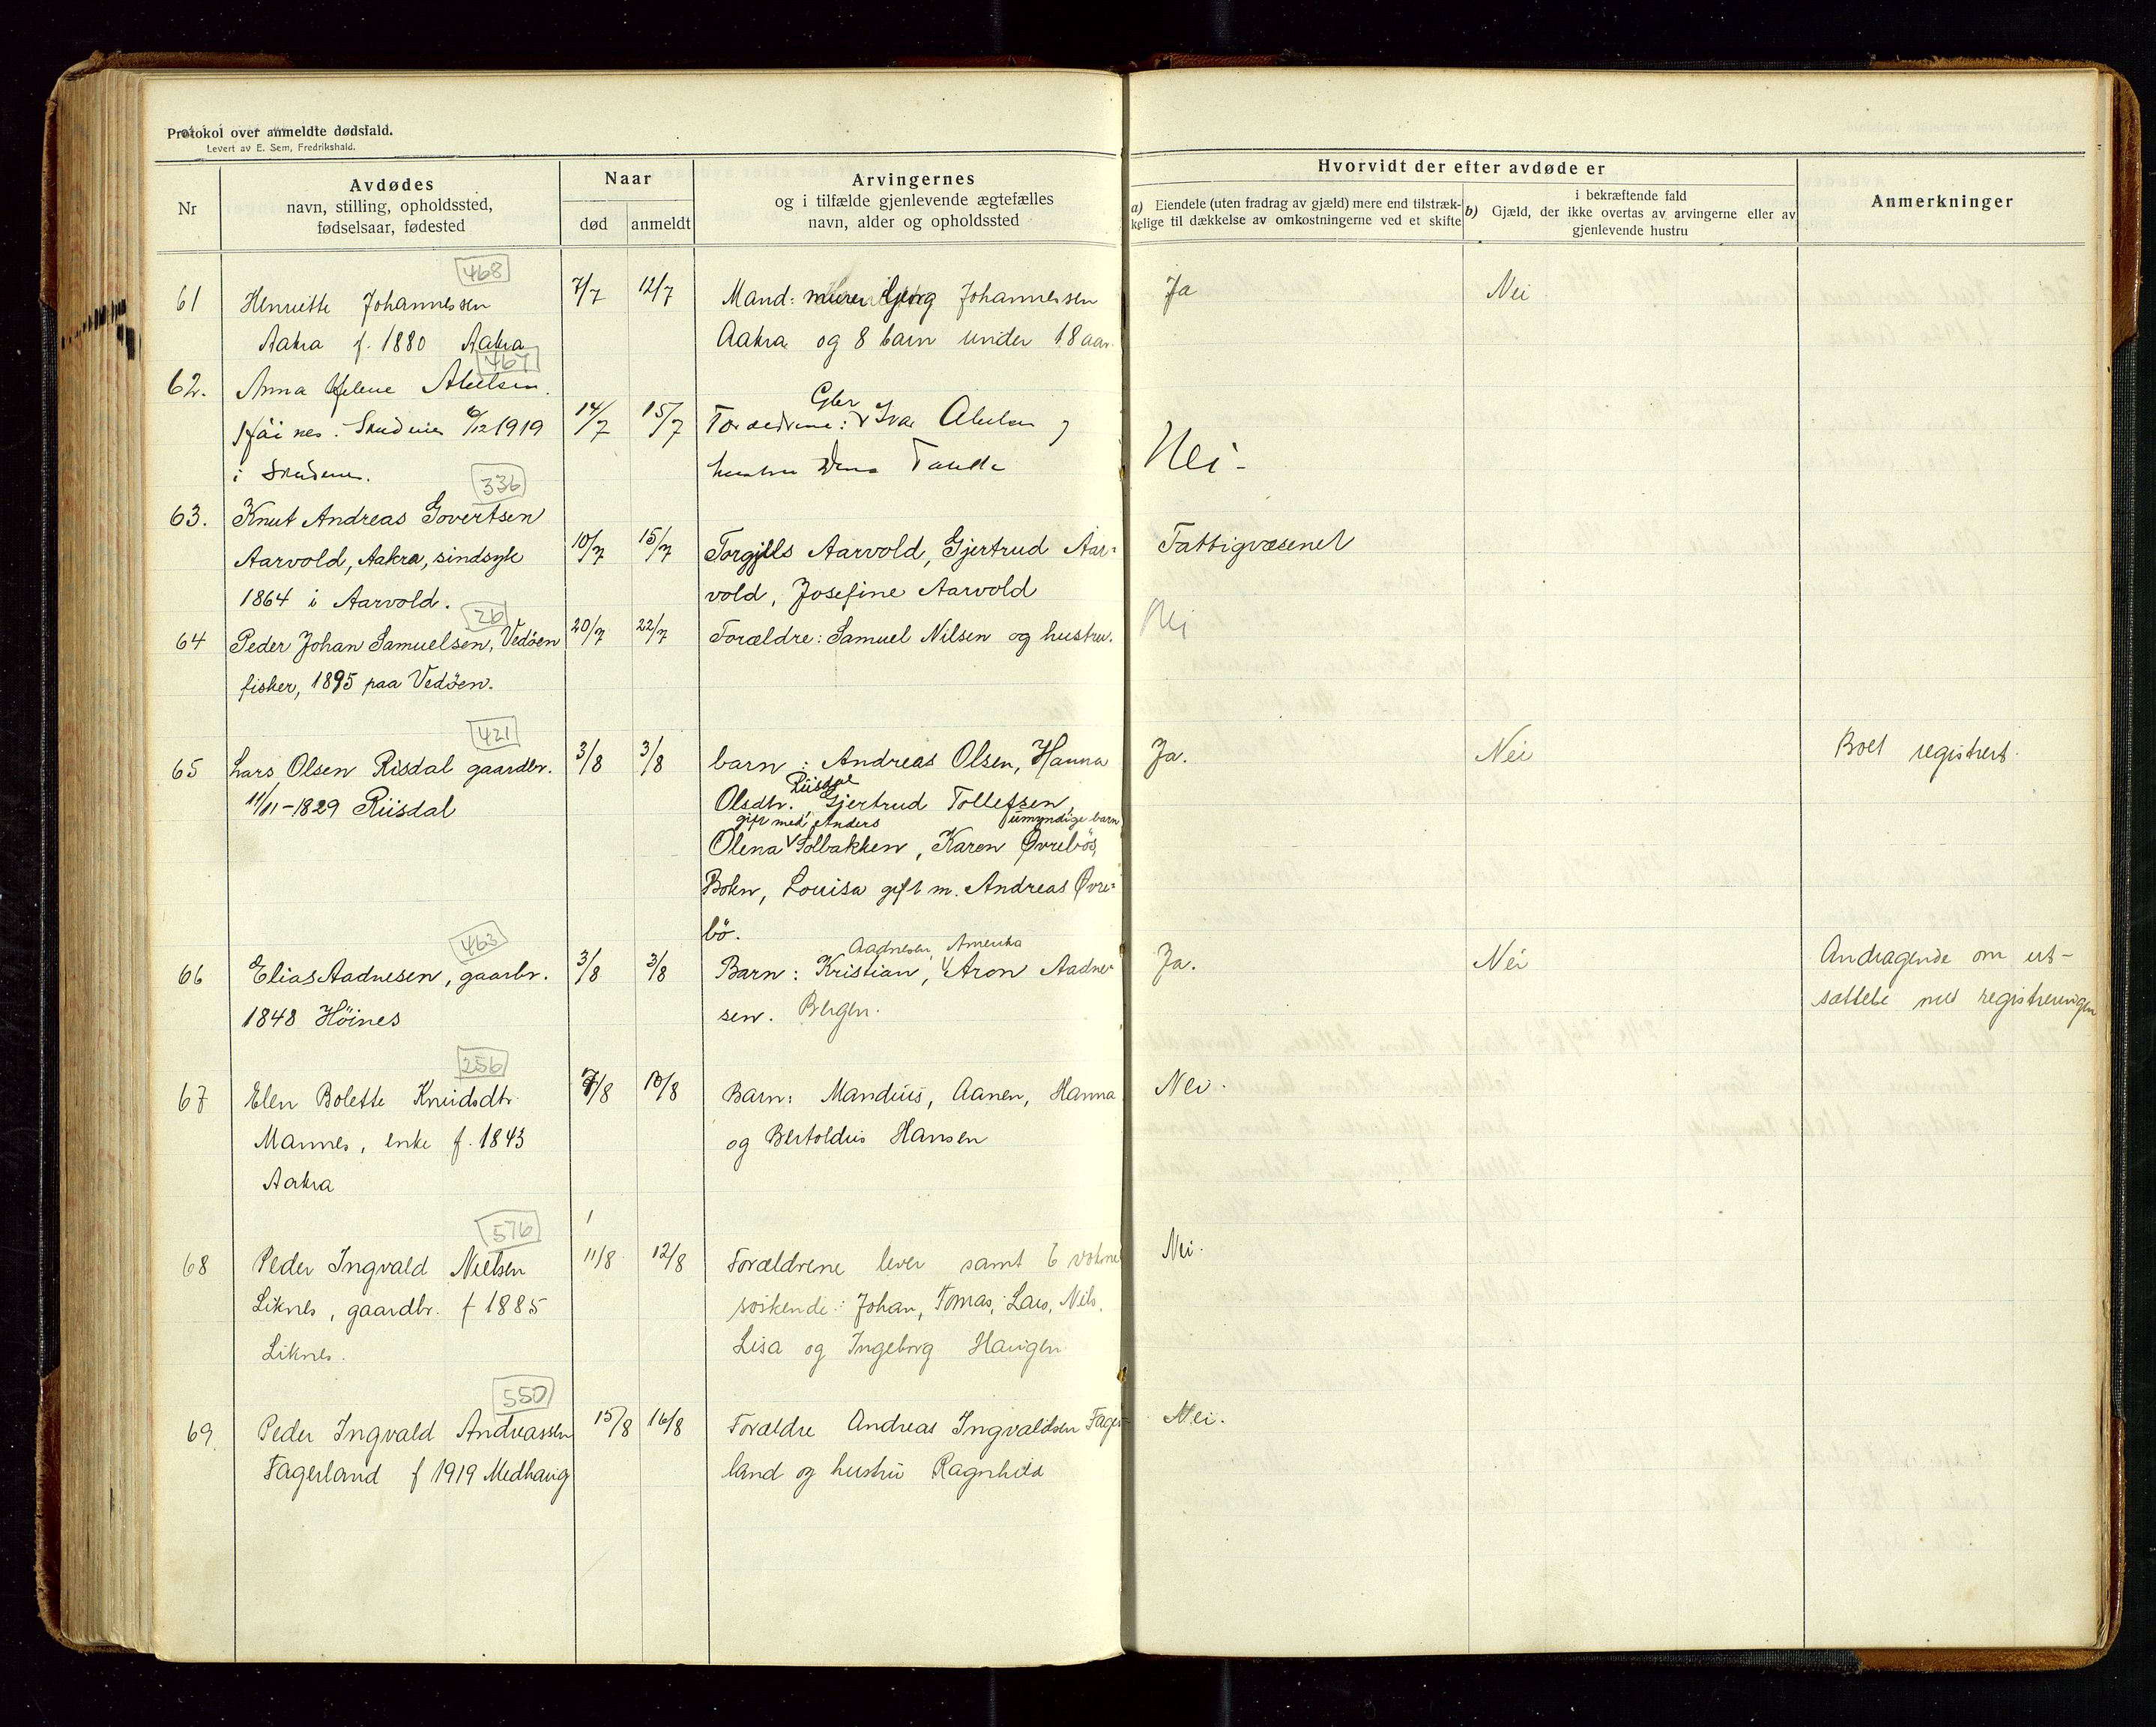 Protokol over anmeldte dødsfald.
Levert av E. Sem, Fredrikshald.
Nr
Avdødes
navn, stilling, opholdssted,
fødselsaar, fødested
Naar
død
anmeldt
Arvingernes
og i tilfælde gjenlevende ægtefælles
navn, alder og opholdssted
Hvorvidt der efter avdøde er
a) Eiendele (uten fradrag av gjæld) mere end tilstræk-
kelige til dækkelse av omkostningerne ved et skifte
b) i bekræftende fald
Gjæld, der ikke overtas av arvingerne eller av
gjenlevende hustru
Anmerkninger
468
61 Henriette Johannessen 7/7 12/7 Mand: murer Georg Johannessen Ja Nei
Aakra f. 1880 Aakra Aakra og 8 barn under 18 aar.
467
62. Anna Helene Abelsen.
Skudenes 6/12 1919 14/7 15/7 Forældrene: Gbr Ivar Abelsen og Nei-
i Skudenes. hustru
336
63. Knut Andreas Govertsen
Aarvold, Aakra, sindsyk 10/7 15/7 Torgjils Aarvold, Gjertrud Aar- Fattigvæsenet
1864 i Aarvold. vold, Josefine Aarvold
26
64 Peder Johan Samuelsen, Vedøen 20/7 22/7 Forældre: Samuel Nilsen og hustru. Nei
fisker, 1895 paa Vedøen.
421
65 Lars Olsen Risdal gaardbr. 3/8 3/8 barn: Andreas Olsen, Hanna Ja. Nei Boet registrert.
11/11-1829 Riisdal Olsdtr. Riisdal, Gjertrud Tollefsen,
gift med Anders umyndige barn
Olena Solbakken, Karen Øvrebös,
Bokn, Louisa gift m. Andreas Øvre-
bö.
463
Aadnesen, Amerika
66 Elias Aadnesen, gaarbr. 3/8 3/8 Barn: Kristian, Aron Aadne- Ja. Nei Andragende om ut-
1848 Höines sen. Bergen. sættelse med registreringen
256
67 Elen Bolette Knudsdtr. 7/8 10/8 Barn: Mandius, Aanen, Hanna Nei.
Mannes, enke f. 1843 og Bertoldus Hansen
Aakra
576
68 Peder Ingvald Nielsen 11/8 12/8 Forældrene lever samt 6 voksne Nei.
Liknes, gaardbr. f 1885 söskende: Johan, Tomas, Lars, Nils,
Liknes. Lisa og Ingeborg Haugen
550
69. Peder Ingvald Andreassen 15/8 16/8 Forældre Andreas Ingvaldsen Fager- Nei.
Fagerland f 1919 Medhaug land og hustru Ragnhild